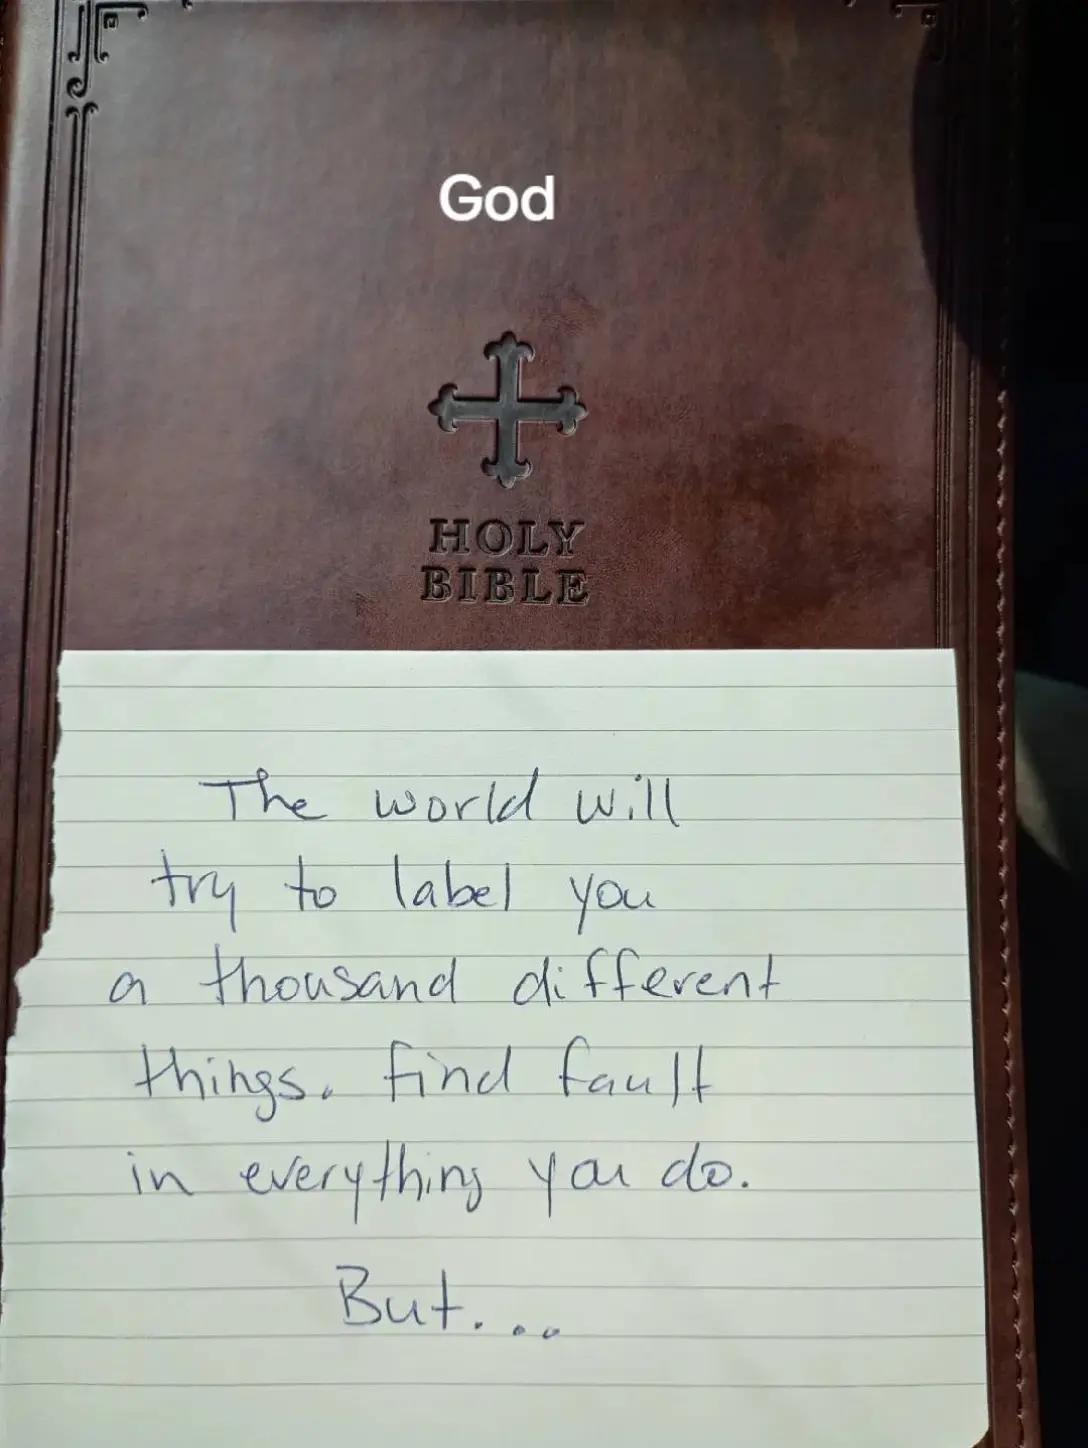 God
HOLY
BIBLE
The world will
try to label you
a thousand different
things. find fault
in everything you do.
But....